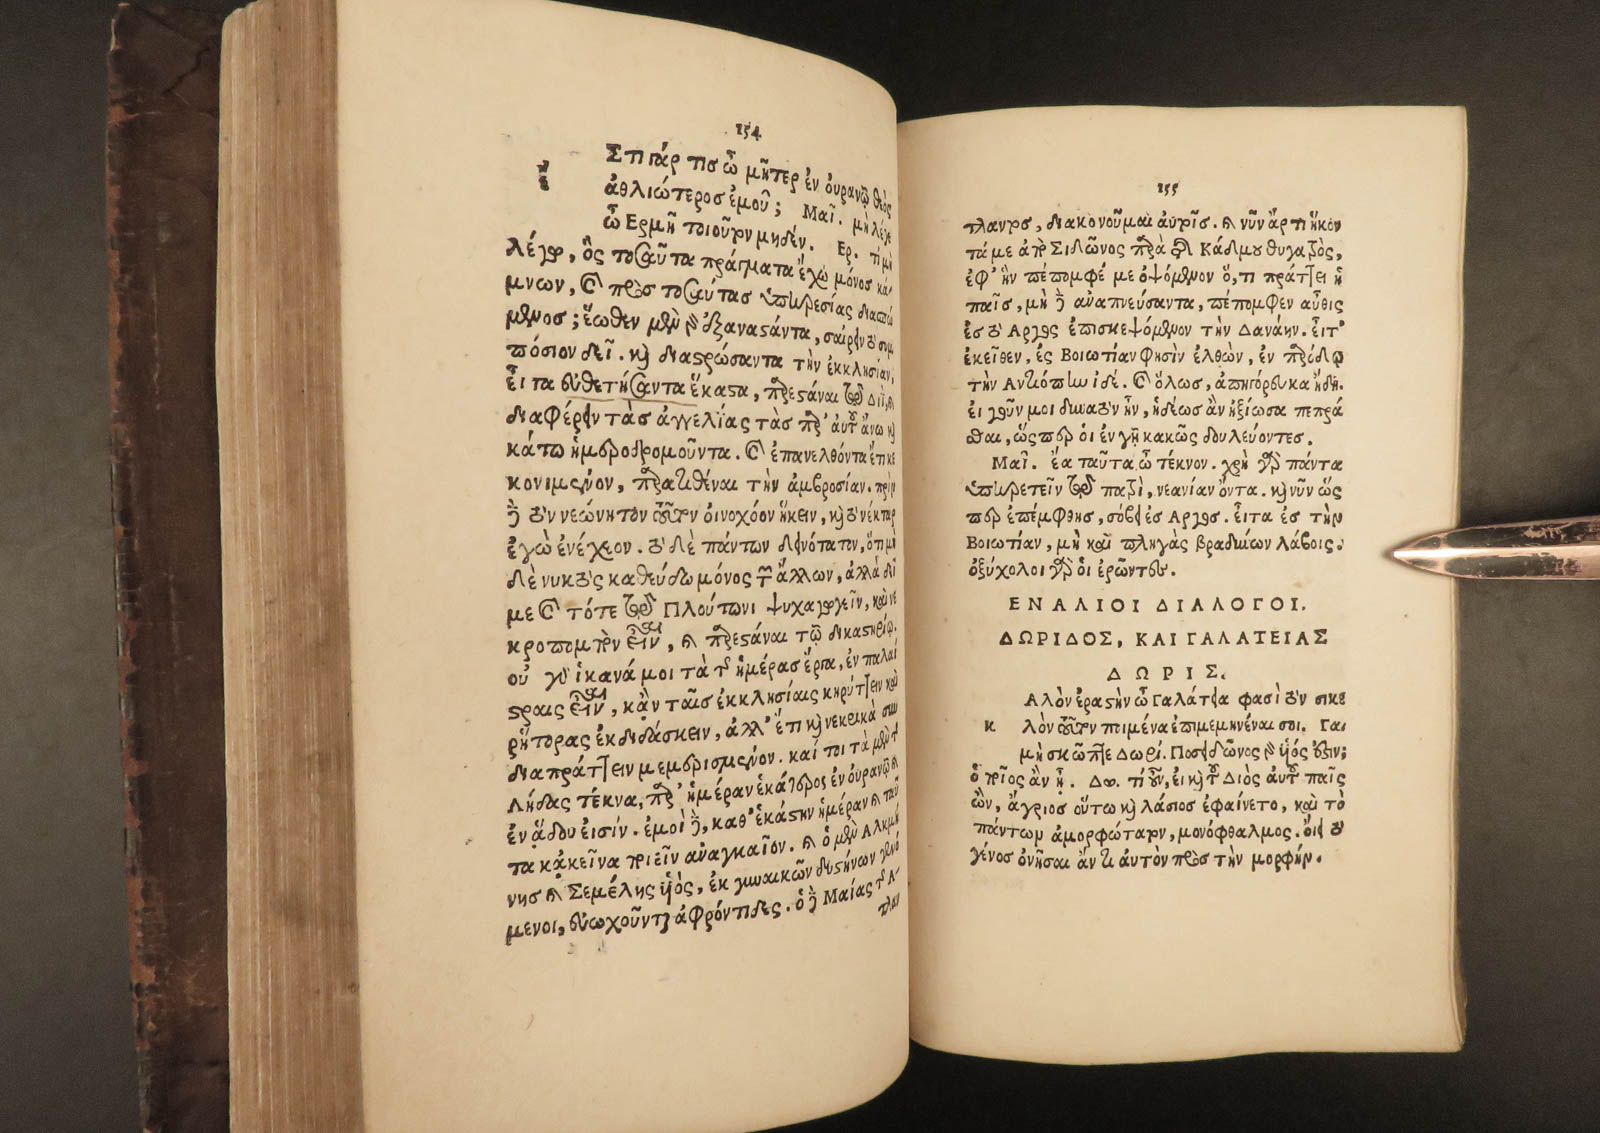 154
ἔ
Στι γάρ τισ ὦ μῆτερ ἐν οὐρανῷ θεὸς
ἀθλιώτεροσ ἐμοῦ; Μαῖ. μὴ λέγε
ὦ Ερμῆ τοιοῦτον μηδέν. Ερ. τί μὴ
λέγω, ὃς τοσαῦτα πράγματα ἔχω μόνοσ κά-
μνων, καὶ πρὸσ τοσαύτασ ὑπηρεσίας διασπώ
μενοσ; ἕωθεν μὲν γὰρ ἐξαναστάντα, σαίρειν τὸ συμ
πόσιον δεῖ. καὶ διαστρώσαντα τὴν ἐκκλησίαν,
εἶτα εὐθετήσαντα ἕκαστα, παρεστάναι τῷ Διῒ, καὶ
διαφέρειν τὰσ ἀγγελίας τὰσ παρ' αὐτοῦ ἄνω καὶ
κάτω ἡμεροδρομοῦντα. καὶ ἐπανελθόντα ἔτι κε
κονιμένον, παρατιθέναι τὴν ἀμβροσίαν. πρὶν
δὲ τὸν νεώνητον τοῦτον οἰνοχόον ἥκειν, καὶ τὸ νέκταρ
ἐγὼ ἐνέχεον. τὸ δὲ πάντων δεινότατον, ὅτι μη
δὲ νυκτὸς καθεύδω μόνος τῶν ἄλλων, ἀλλὰ δεῖ
με καὶ τότε τῷ Πλούτωνι ψυχαγωγεῖν, καὶ νε
κροπομπὸν εἶναι, καὶ παρεστάναι τῷ δικαστηρίῳ.
οὐ γὰρ ἱκανά μοι τὰ τῆς ἡμέρασ ἔργα, ἐν παλαί
στραις εἶναι, κἀν ταῖσ ἐκκλησίαις κηρύττειν καὶ
ῥήτορας ἐκδιδάσκειν, ἀλλ' ἔτι καὶ νεκρικὰ συν
διαπράττειν μεμερισμένον. καί τοι τὰ μὲν τῆς
Λήδας τέκνα, παρ' ἡμέραν ἑκάτερος ἐν οὐρανῷ καὶ
ἐν ᾅδου εἰσίν. ἐμοὶ δὲ, καθ' ἑκάστην ἡμέραν καὶ ταῦ
τα κἀκεῖνα ποιεῖν ἀναγκαῖον. καὶ ὁ μὲν Αλκμή
νησ καὶ Σεμέλης υἱὸς, ἐκ γυναικῶν δυστήνων γενό
μενοι, εὐωχοῦνται ἀφρόντιδες. ὁ δὲ Μαίας τῆς Α-
τλαν
155
τλαντος, διακονοῦμαι αὐτοῖσ. καὶ νῦν ἄρτι ἥκον
τά με ἀπὸ Σιδῶνος παρὰ τῆς Κάδμου θυγατρὸς,
ἐφ' ἣν πέπομφέ με ὀψόμενον ὅ,τι πράττει ἡ
παῖσ, μὴ δὲ ἀναπνεύσαντα, πέπομφεν αὖθις
ἐσ τὸ Αργος ἐπισκεψόμενον τὴν Δανάην. εἶτ'
ἐκεῖθεν, ἐς Βοιωτίαν φησὶν ἐλθὼν, ἐν παρόδῳ
τὴν Αντιόπην ἰδέ. καὶ ὅλωσ, ἀπηγόρευκα ἤδη.
εἰ γοῦν μοι δυνατὸν ἦν, ἡδέωσ ἂν ἠξίωσα πεπρᾶ
σθαι, ὥσπερ οἱ ἐν γῇ κακῶς δουλεύοντεσ.
Μαῖ. ἔα ταῦτα ὦ τέκνον. χρὴ γὰρ πάντα
ὑπηρετεῖν τῷ πατρὶ, νεανίαν ὄντα. καὶ νῦν ὥς
περ ἐπέμφθησ, σόβει ἐσ Αργος. εἶτα ἐσ τὴν
Βοιωτίαν, μὴ καὶ πληγὰς βραδύνων λάβοις.
ὀξύχολοι γὰρ οἱ ἐρῶντες.
ΕΝΑΛΙΟΙ ΔΙΑΛΟΓΟΙ.
ΔΩΡΙΔΟΣ, ΚΑΙ ΓΑΛΑΤΕΙΑΣ
ΔΩΡΙΣ.
κ
Αλὸν ἐραστὴν ὦ Γαλάτεια φασὶ τὸν σικε
λὸν τοῦτον ποιμένα ἐπιμεμηνέναι σοι. Γα.
μὴ σκῶπτε Δωρί. Ποσειδῶνος γὰρ υἱός ἐστιν,
ὁποῖος ἂν ᾖ. Δω. τί οὖν, εἰ καὶ τοῦ Διὸς αὐτοῦ παῖς
ὢν, ἄγριοσ οὕτω καὶ λάσιος ἐφαίνετο, καὶ τὸ
πάντων ἀμορφώτατον, μονόφθαλμος. οἴει τὸ
γένοσ ὀνῆσαι ἄν τι αὐτὸν πρὸσ τὴν μορφήν.